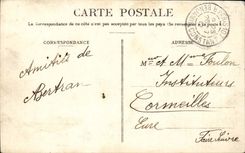 CARTE POSTALE
La Correspondance au recto n'est pas acceptée par tous les pays étrangers
CORRESPONDANCE
ADRESSE
Amitiés de
Bertran
Mme et M. Foulon
Instituteurs
Cormeilles
Eure
Faire suivre